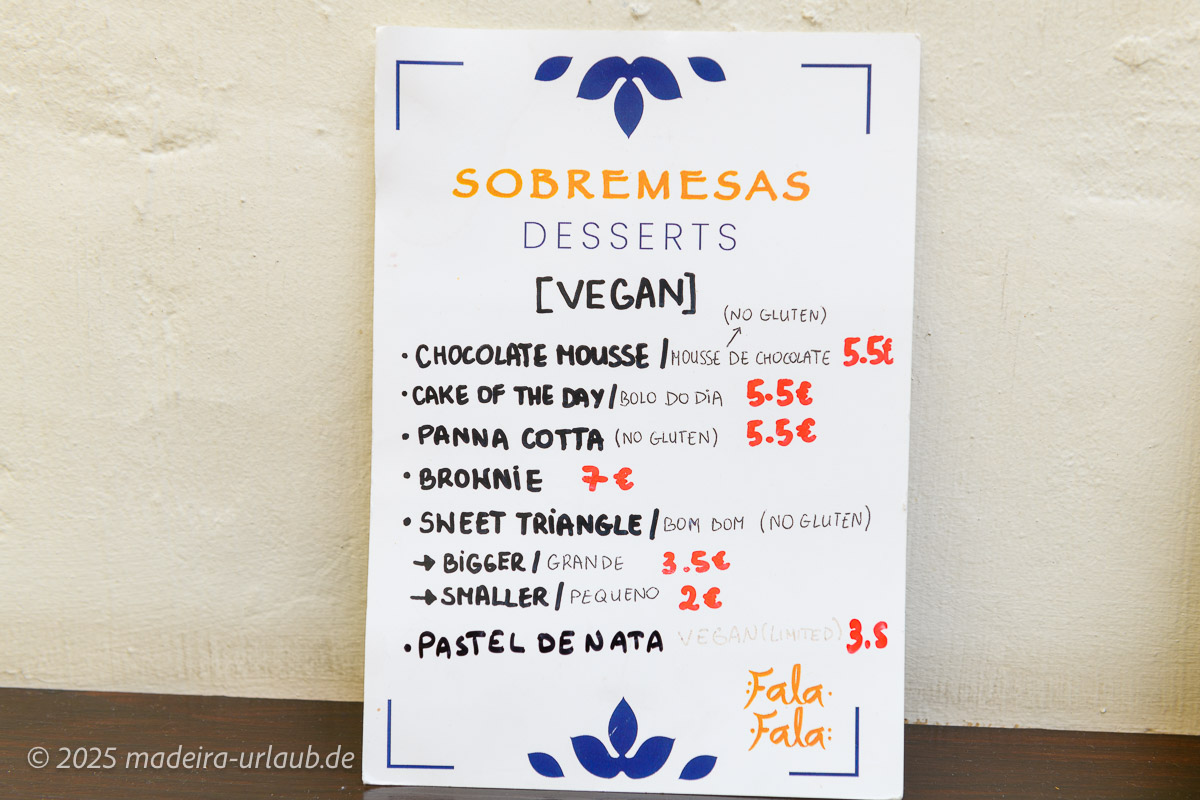 SOBREMESAS
DESSERTS
[VEGAN]
(NO GLUTEN)
• CHOCOLATE MOUSSE / MOUSSE DE CHOCOLATE 5.5€
• CAKE OF THE DAY / BOLO DO DIA 5.5€
• PANNA COTTA (NO GLUTEN) 5.5€
• BROWNIE 7€
• SWEET TRIANGLE / BOM BOM (NO GLUTEN)
→ BIGGER / GRANDE 3.5€
→ SMALLER / PEQUENO 2€
• PASTEL DE NATA VEGAN (LIMITED) 3.5
Fala
Fala
© 2025 madeira-urlaub.de